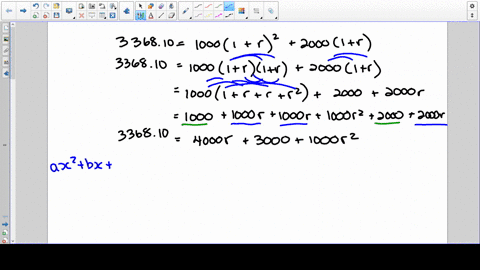 3368.10 = 1000(1+r)² + 2000(1+r)
3368.10 = 1000(1+r)(1+r) + 2000(1+r)
= 1000(1+r+r+r²) + 2000 + 2000r
= 1000 + 1000r + 1000r + 1000r² + 2000 + 2000r
3368.10 = 4000r + 3000 + 1000r²
ax²+bx+